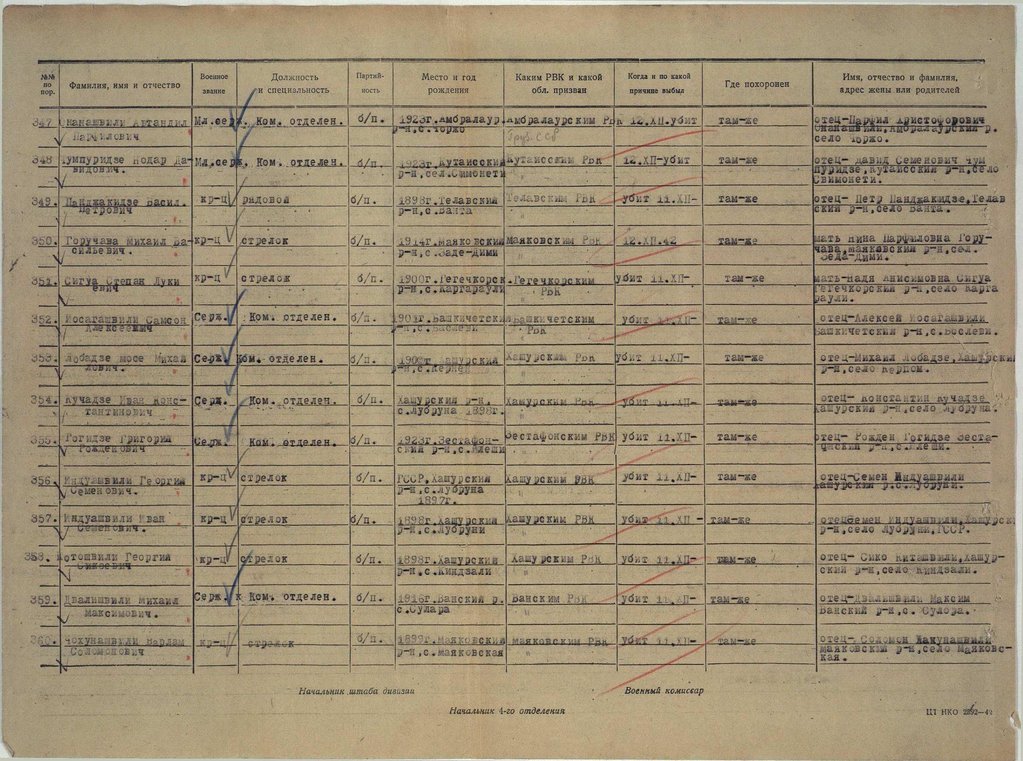 №№ по пор. Фамилия, имя и отчество Военное звание Должность и специальность Партий- ность Место и год рождения Каким РВК и какой обл. призван Когда и по какой причине выбыл Где похоронен Имя, отчество и фамилия, адрес жены или родителей
347 Автандил Мл.серж. Ком. отделен. б/п. 1923г.Амбралаур. Амбралаурским РВК 12.XП.убит там-же отец-Парфил Христофорович
Парфилович р-н,с.Торжо Груз.ССР Амбралаурский р.
село Торжо.
348 Чумпуридзе Нодар Да- Мл.серж. Ком. отделен. б/п. 1923г.Кутаисский Кутаисским РВК 12.XП-убит там-же отец- Давид Семенович Чум
видович. р-н,сел.Симонети пуридзе,Кутаисский р-н,село
Свимонети.
349. Панджакидзе Васил. кр-ц рядовой б/п. 1898г.Телавский Телавским РВК убит 11.XП- там-же отец- Петр Панджакидзе,Телав
Петрович р-н,с.Ванта ский р-н,село Ванта.
350. Горучава Михаил Ва- кр-ц стрелок б/п. 1914г.Маяковский Маяковским РВК 12.XП.42 там-же мать Нина Парфиловна Гору-
сильевич. р-н,с.Заде-Дими чава,маяковский р-н,сел.
351. Сигуа Степан Луки кр-ц стрелок б/п. 1900г.Гегечкорск Гегечкорским убит 11.XП- там-же мать-Надя Анисимовна Сигуа
евич р-н,с.Каргараули РВК Гегечкорский р-н,село Карга
раули.
352. Иосагашвили Самсон Серж. Ком. отделен. б/п. 1901г.Башкичетский Башкичетским убит 11.XП- там-же отец-Алексей Иосагашвили
Алексеевич р-н,с.Бослеви РВК Башкичетский р-н,с.Бослеви.
353. Лобадзе мосе Михай Серж. Ком. отделен. б/п. Хашурский Хашурским РВК убит 11.XП- там-же отец-Михаил Лобадзе,Хашурский
лович. р-н,с.Керпей р-н,село Керпом.
354. Кучадзе Иван Конс- Серж. Ком. отделен. б/п. Хашурский р-н. Хашурским РВК убит 11.XП- там-же отец- Константин Кучадзе
тантинович с.Лубруна 1898г. Хашурский р-н,село Лубруна.
355. Гогидзе Григорий Серж. Ком. отделен. б/п. 1923г.Зестафон- Зестафонским РВК убит 11.XП- там-же отец- Рожден Гогидзе Зеста-
Рожденович ский р-н,с.Илеши
356. Индуашвили Георгий кр-ц стрелок б/п. ГССР,Хашурский Хашурским РВК убит 11.XП- там-же отец-Семен Индуашвили
Семенович. р-н,с.Лубруна Хашурский р.с.Лубруни.
1897г.
357. Индуашвили Иван кр-ц стрелок б/п. 1898г.Хашурский Хашурским РВК убит 11.XП - там-же отецСемен Индуашвили,Хашурск
Семенович. р-н,с.Лубруни р-н,село Лубруни,ГССР.
358. Котошвили Георгий кр-ц стрелок б/п. 1898г.Хашурский Хашурским РВК убит 11.XП- там-же отец- Сико Киташвили,Хашур-
Сикоевич р-н,с.Киндзали ский р-н,село Киндзали.
359. Двалишвили михаил Серж. Ком. отделен. б/п. 1916г.Ванский р. Ванским РВК убит 11.XП- там-же отец-Двалишвили Максим
Максимович. с.Сулара Ванский р-н,с.Сулора.
360. Чохунашвили Варлам кр-ц стрелок б/п. 1899г.маяковский маяковским РВК убит 11.XП- там-же отец- Соломон Чакунашвили
Соломонович р-н,с.маяковская маяковский р-н,село Маяковс-
кая.
Начальник штаба дивизии Военный комиссар
Начальник 4-го отделения ЦТ НКО